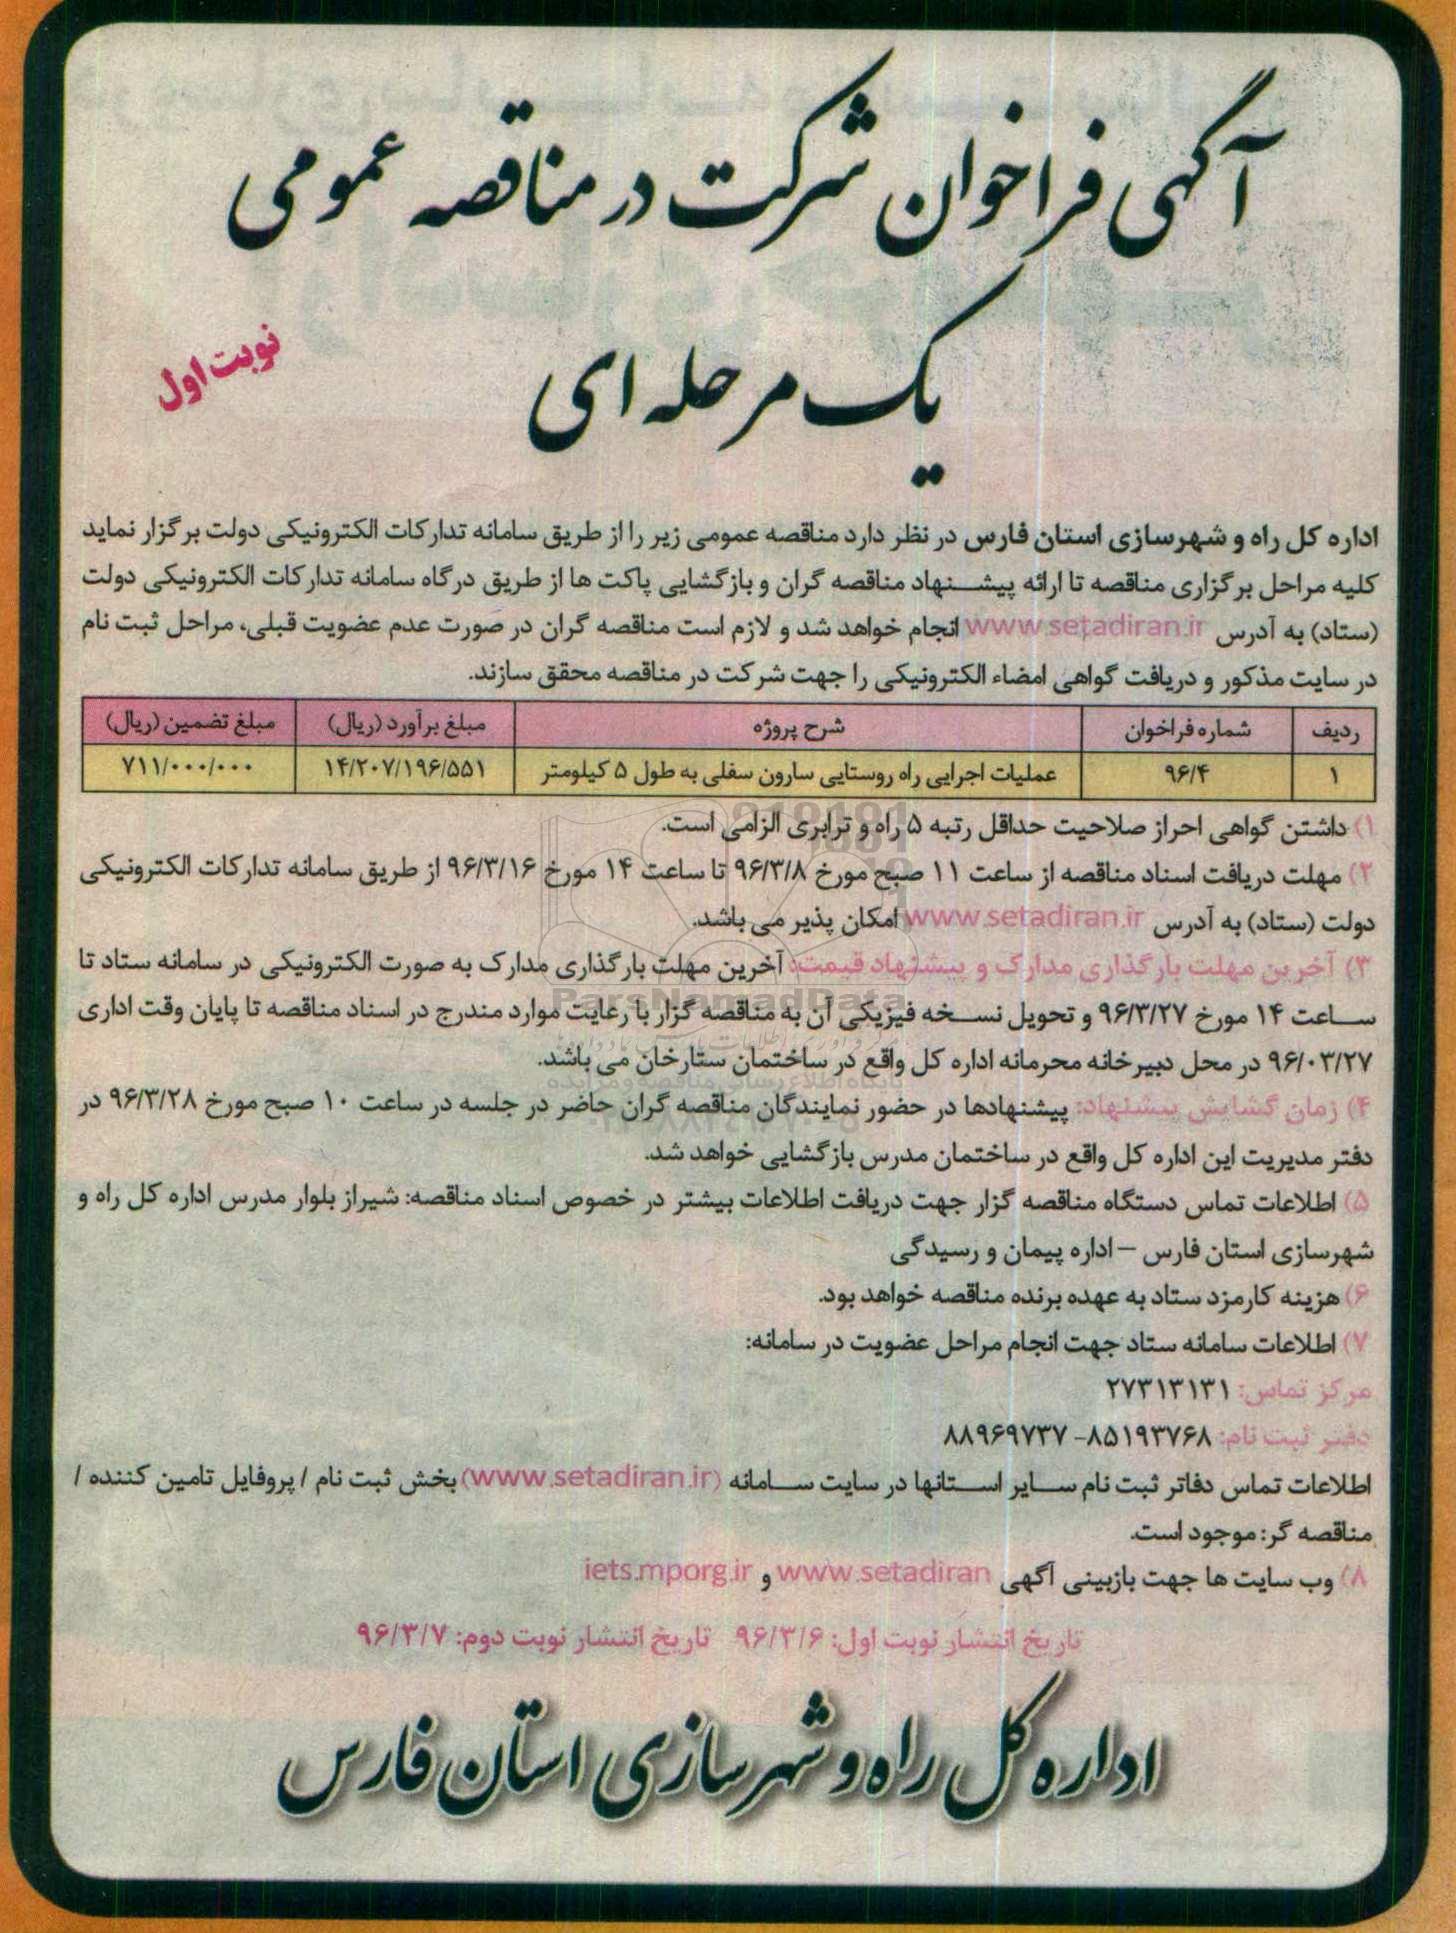 آگهی فراخوان شرکت در مناقصه عمومی
یک مرحله ای
نوبت اول
اداره کل راه و شهرسازی استان فارس در نظر دارد مناقصه عمومی زیر را از طریق سامانه تدارکات الکترونیکی دولت برگزار نماید
کلیه مراحل برگزاری مناقصه تا ارائه پیشنهاد مناقصه گران و بازگشایی پاکت ها از طریق درگاه سامانه تدارکات الکترونیکی دولت
(ستاد) به آدرس www.setadiran.ir انجام خواهد شد و لازم است مناقصه گران در صورت عدم عضویت قبلی، مراحل ثبت نام
در سایت مذکور و دریافت گواهی امضاء الکترونیکی را جهت شرکت در مناقصه محقق سازند.
ردیف شماره فراخوان شرح پروژه مبلغ برآورد (ریال) مبلغ تضمین (ریال)
۱ ۹۶/۴ عملیات اجرایی راه روستایی سارون سفلی به طول ۵ کیلومتر ۱۴/۲۰۷/۱۹۶/۵۵۱ ۷۱۱/۰۰۰/۰۰۰
۱) داشتن گواهی احراز صلاحیت حداقل رتبه ۵ راه و ترابری الزامی است.
۲) مهلت دریافت اسناد مناقصه از ساعت ۱۱ صبح مورخ ۹۶/۳/۸ تا ساعت ۱۴ مورخ ۹۶/۳/۱۶ از طریق سامانه تدارکات الکترونیکی
دولت (ستاد) به آدرس www.setadiran.ir امکان پذیر می باشد.
۳) آخرین مهلت بارگذاری مدارک و پیشنهاد قیمت: آخرین مهلت بارگذاری مدارک به صورت الکترونیکی در سامانه ستاد تا
ساعت ۱۴ مورخ ۹۶/۳/۲۷ و تحویل نسخه فیزیکی آن به مناقصه گزار با رعایت موارد مندرج در اسناد مناقصه تا پایان وقت اداری
۹۶/۰۳/۲۷ در محل دبیرخانه محرمانه اداره کل واقع در ساختمان ستارخان می باشد.
۴) زمان گشایش پیشنهاد: پیشنهادها در حضور نمایندگان مناقصه گران حاضر در جلسه در ساعت ۱۰ صبح مورخ ۹۶/۳/۲۸ در
دفتر مدیریت این اداره کل واقع در ساختمان مدرس بازگشایی خواهد شد.
۵) اطلاعات تماس دستگاه مناقصه گزار جهت دریافت اطلاعات بیشتر در خصوص اسناد مناقصه: شیراز بلوار مدرس اداره کل راه و
شهرسازی استان فارس – اداره پیمان و رسیدگی
۶) هزینه کارمزد ستاد به عهده برنده مناقصه خواهد بود.
۷) اطلاعات سامانه ستاد جهت انجام مراحل عضویت در سامانه:
مرکز تماس: ۲۷۳۱۳۱۳۱
دفتر ثبت نام: ۸۵۱۹۳۷۶۸- ۸۸۹۶۹۷۳۷
اطلاعات تماس دفاتر ثبت نام سایر استانها در سایت سامانه (www.setadiran.ir) بخش ثبت نام / پروفایل تامین کننده /
مناقصه گر: موجود است.
۸) وب سایت ها جهت بازبینی آگهی www.setadiran و iets.mporg.ir
تاریخ انتشار نوبت اول: ۹۶/۳/۶ تاریخ انتشار نوبت دوم: ۹۶/۳/۷
اداره کل راه و شهرسازی استان فارس
ParsNamadData
پایگاه اطلاع رسانی مناقصه و مزایده